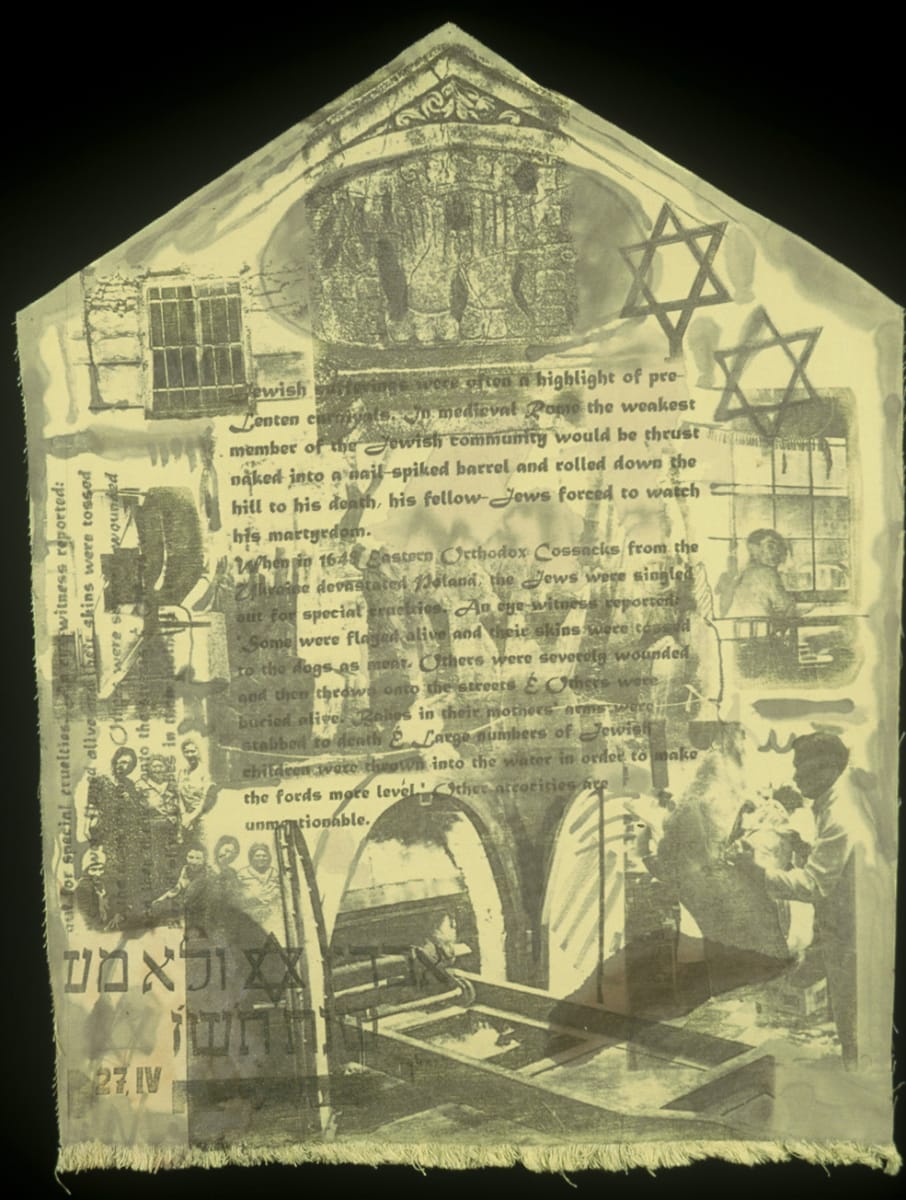 Jewish sufferings were often a highlight of pre-
Lenten carnivals. In medieval Rome the weakest
member of the Jewish community would be thrust
naked into a nail-spiked barrel and rolled down the
hill to his death, his fellow-Jews forced to watch
his martyrdom.
When in 1648 Eastern Orthodox Cossacks from the
Ukraine devastated Poland, the Jews were singled
out for special cruelties. An eye-witness reported:
'Some were flayed alive and their skins were tossed
to the dogs as meat. Others were severely wounded
and then thrown onto the streets & Others were
buried alive. Babes in their mothers' arms were
stabbed to death & Large numbers of Jewish
children were thrown into the water in order to make
the fords more level.' Other atrocities are
unmentionable.
out for special cruelties. An eye-witness reported:
flayed alive and their skins were tossed
Others were wounded
ולא מע
27, IV